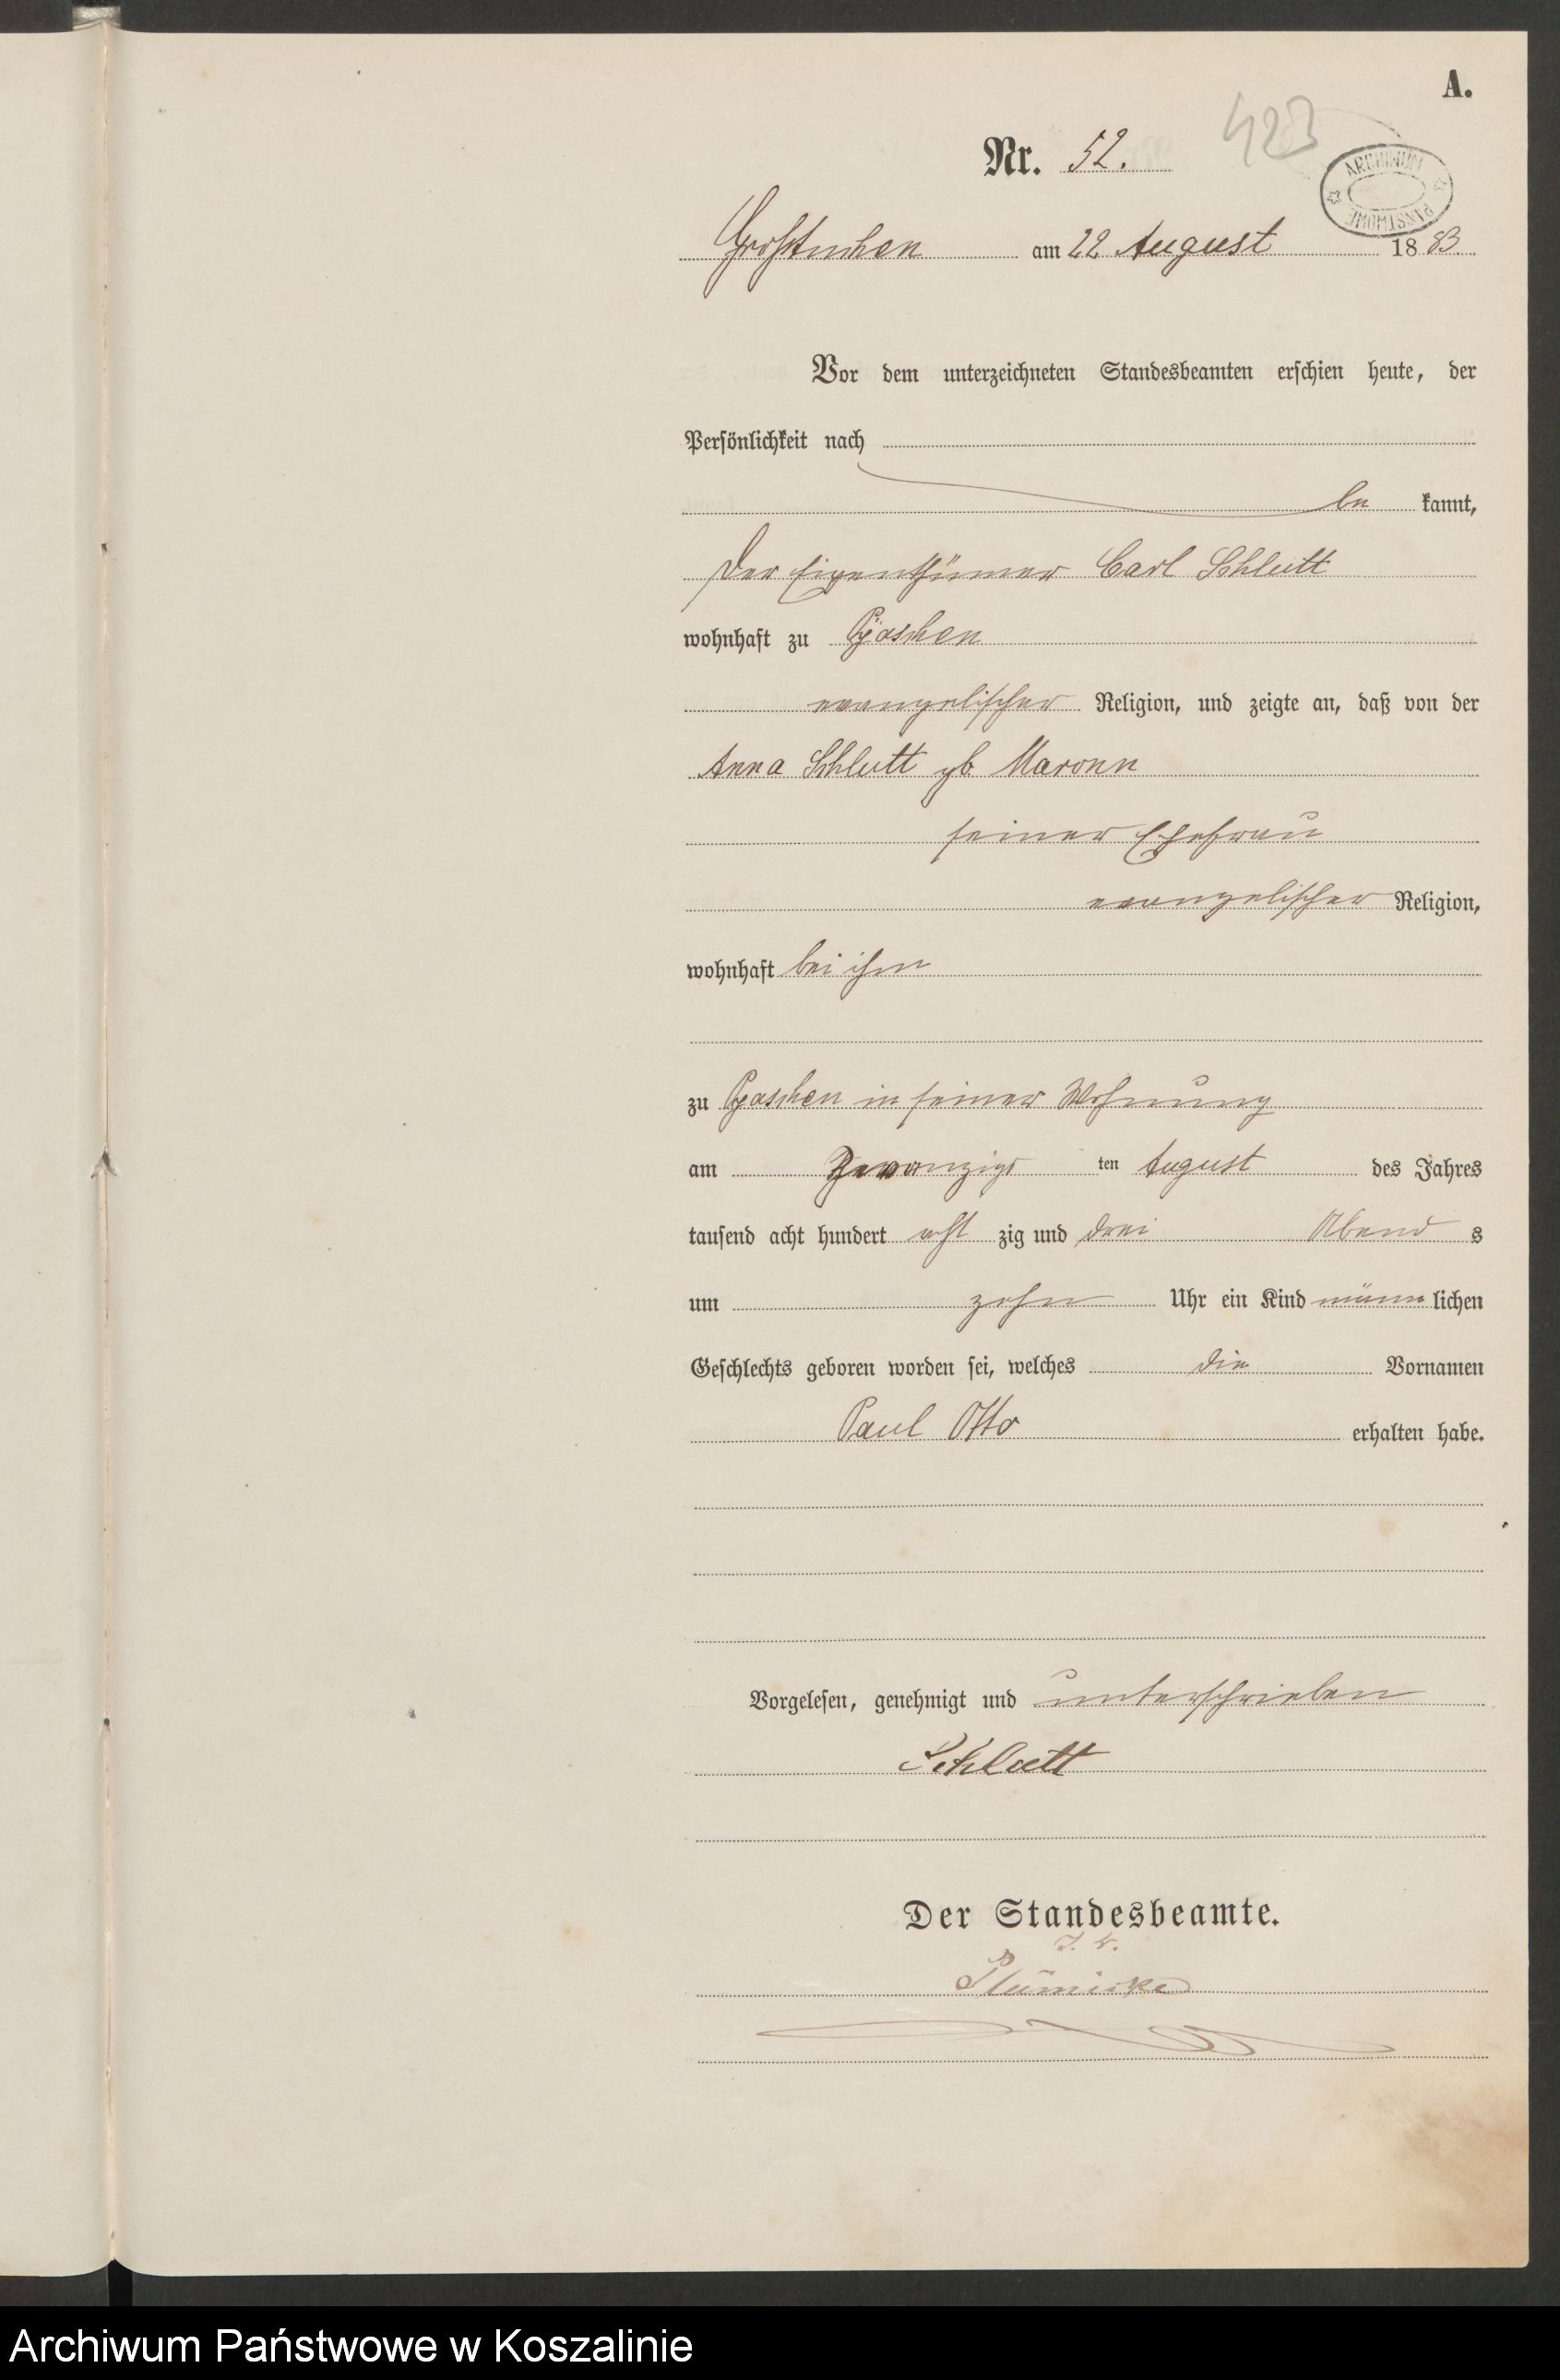 A.
423
Nr. 52.
ARCHIWUM PAŃSTWOWE
Großtuchen am 22 August 1883.
Vor dem unterzeichneten Standesbeamten erschien heute, der
Persönlichkeit nach
be kannt,
der Eigenthümer Carl Schlutt
wohnhaft zu Pyaschen
evangelischer Religion, und zeigte an, daß von der
Anna Schlutt gb Maronn
seiner Ehefrau
evangelischer Religion,
wohnhaft bei ihm
zu Pyaschen in seiner Wohnung
am Zwanzigs ten August des Jahres
tausend acht hundert acht zig und drei Abend s
um zehn Uhr ein Kind männ lichen
Geschlechts geboren worden sei, welches die Vornamen
Paul Otto erhalten habe.
Vorgelesen, genehmigt und unterschrieben
Schlutt
Der Standesbeamte.
J. V.
Plümicke
Archiwum Państwowe w Koszalinie